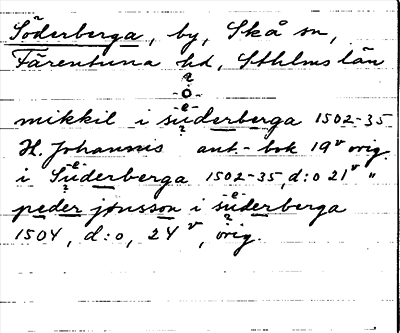 Söderberga, by, Skå sn,
Färentuna hd, Sthlms län
mikkil i süderberga 1502-35
H. Johannis ant.-bok 19v orig.
i Süderberga 1502-35, d:o 21v "
peder jönsson i süderberga
1504, d:o, 24v, orig.